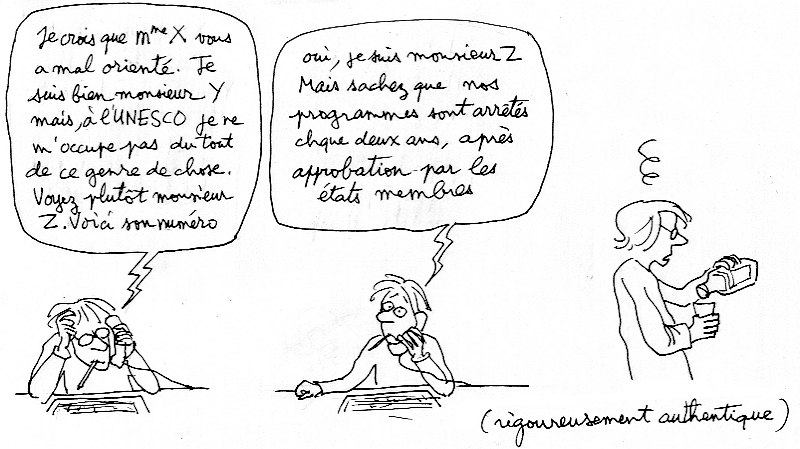 Je crois que Mme X vous
a mal orienté. Je
suis bien monsieur Y
mais, à l'UNESCO je ne
m'occupe pas du tout
de ce genre de chose.
Voyez plutôt monsieur
Z. Voici son numéro
oui, je suis monsieur Z
Mais sachez que nos
programmes sont arrêtés
chque deux ans, après
approbation par les
états membres
(rigoureusement authentique)